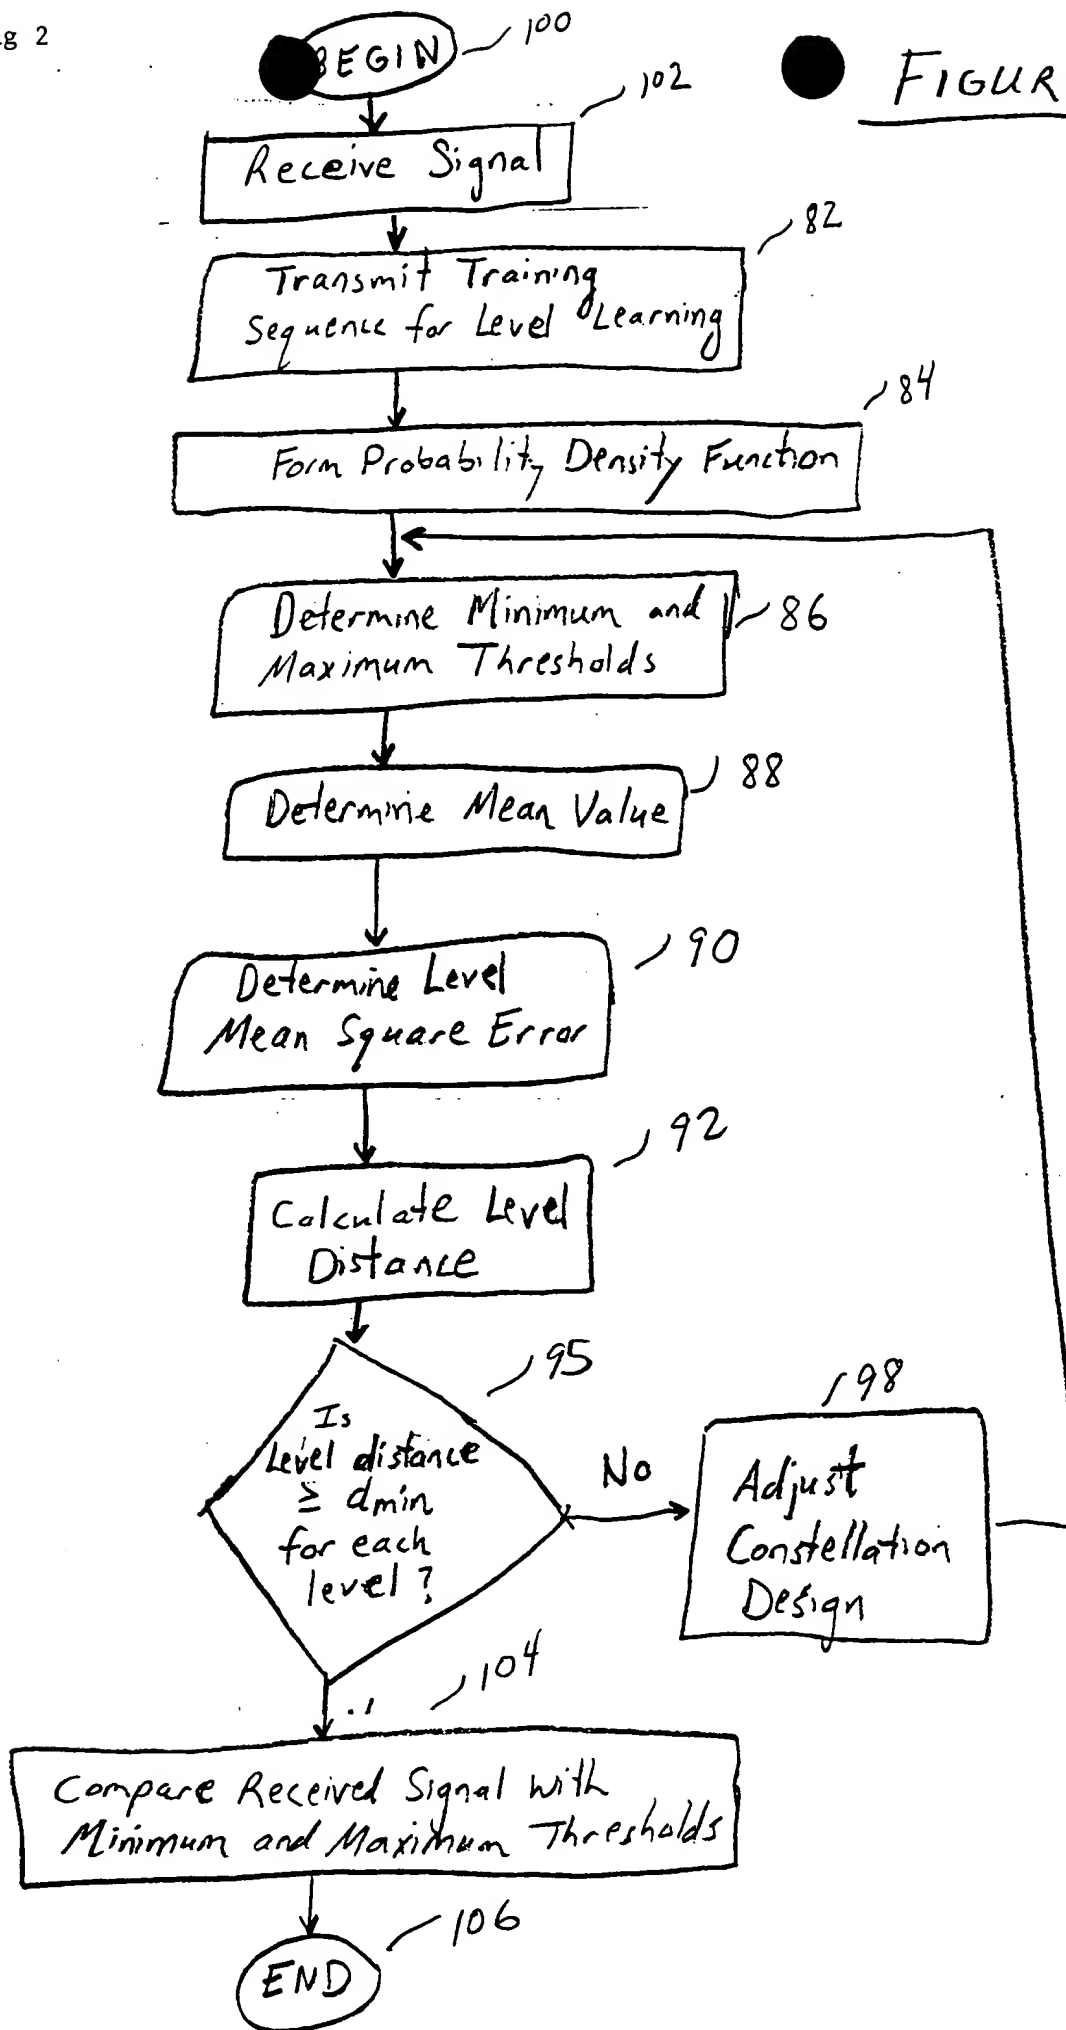 g 2
BEGIN 100
FIGUR
102
Receive Signal
82
Transmit Training
Sequence for Level Learning
84
Form Probability Density Function
Determine Minimum and
Maximum Thresholds
86
88
Determine Mean Value
90
Determine Level
Mean Square Error
92
Calculate Level
Distance
95
Is
Level distance
≥ dmin
for each
level?
No
98
Adjust
Constellation
Design
104
Compare Received Signal with
Minimum and Maximum Thresholds
106
END